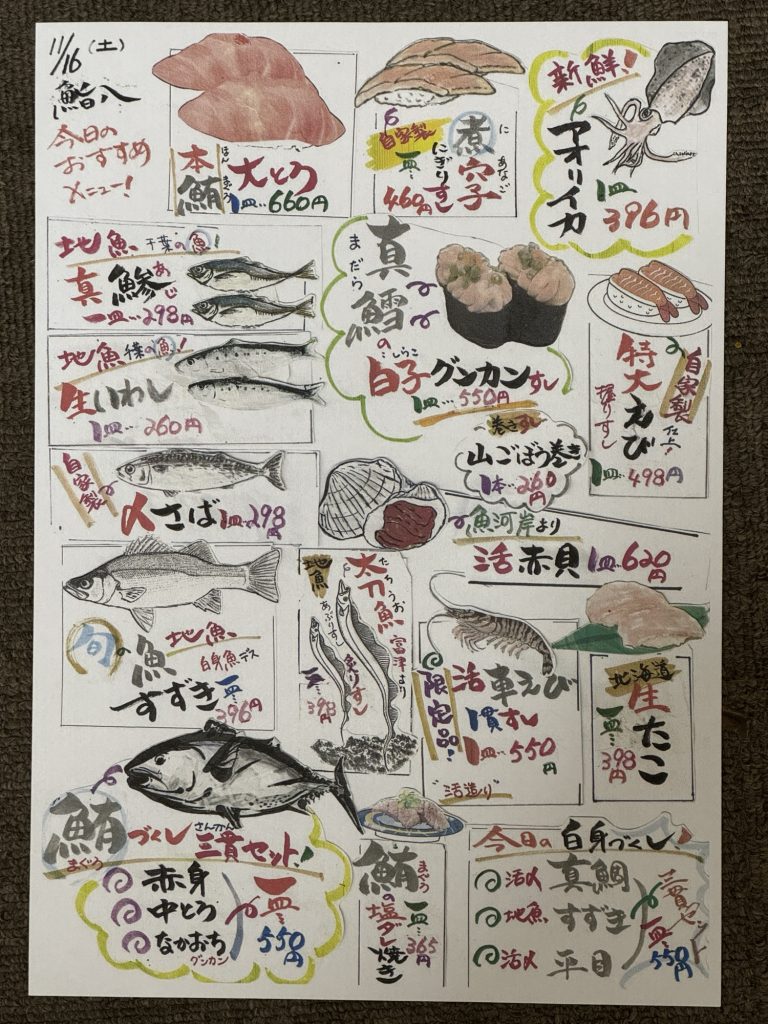 11/16(土)
鮨八
今日の
おすすめ
メニュー!
本鮪
ほんまぐろ
大とろ
1皿…660円
自家製
煮穴子
にあなご
にぎりずし
一皿…460円
新鮮!
アオリイカ
1皿
396円
地魚 千葉の魚!
真鯵
あじ
一皿…298円
地魚 千葉の魚!
生いわし
1皿…260円
自家製
〆さば 1皿…298円
真鱈の
まだら
白子グンカンすし
しらこ
1皿…550円
巻きずし
山ごぼう巻き
1本…260円
自家製
仕上!
特大えび
握りすし
1皿…498円
魚河岸より
活赤貝 1皿…620円
旬の魚
地魚
白身魚デス
すずき 一皿…396円
地魚
太刀魚
たちうお
富津より
あぶりすし
炙りすし
一皿…398円
限定品!
活車えび
一貫すし
1皿…550円
"活造り"
北海道
生たこ
一皿…398円
鮪づくし
まぐろ
三貫セット!
さんかん
赤身
中とろ
なかおち
グンカン
一皿…550円
鮪の塩ダレ焼き
まぐろ
一皿…365円
今日の白身づくし!
活〆 真鯛
地魚 すずき
活〆 平目
三貫セット
一皿…550円